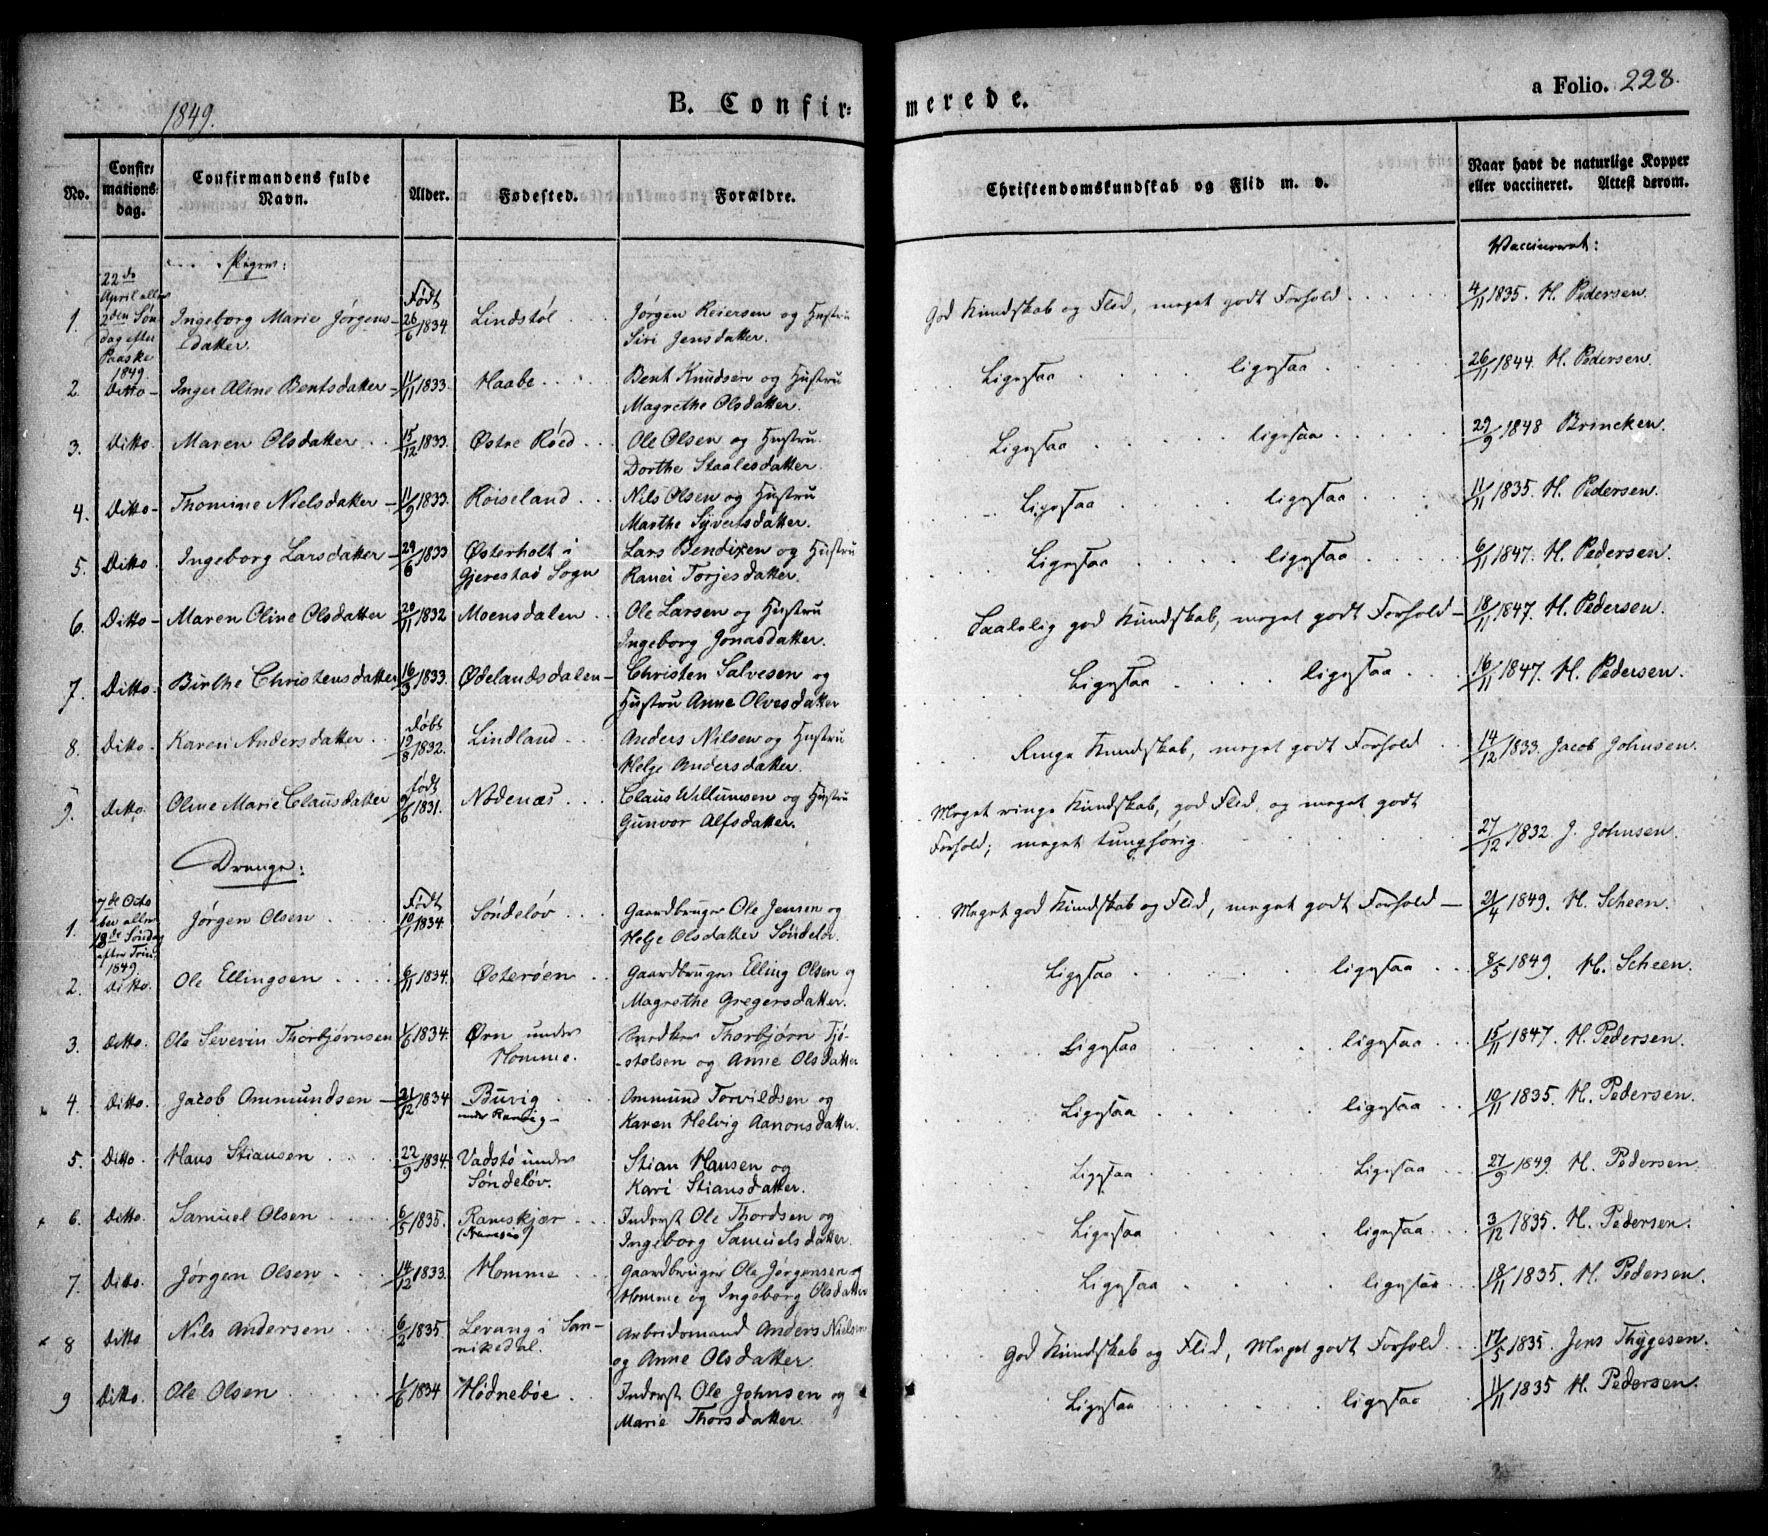 1849.
B. Confirmerede.
a Folio. 228.
No.
Confirmationsdag.
Confirmandens fulde Navn.
Alder.
Fødested.
Forældre.
Christendomskundskab og Flid m. v.
Naar havt de naturlige Kopper eller vaccineret. Attest derom.
Piger:
Vaccineret:
1. 22de April eller 2den Søndag efter Paaske 1849 Ingeborg Marie Jørgensdatter. Født 26/6 1834. Lindstøl Jørgen Reiersen og Hustru Siri Jensdatter. God Kundskab og Flid, meget godt Forhold 4/11 1835. H. Pedersen.
2. Ditto Inger Aline Bentsdatter 11/11 1833. Haabe Bent Knudsen og Hustru Magrethe Olsdatter. Ligesaa ligesaa 26/11 1844 H. Pedersen.
3. Ditto. Maren Olsdatter 15/12 1833. Østre Røed Ole Olsen og Hustru Dorthe Staalesdatter Ligesaa ligesaa 29/9 1848 Brincken.
4. Ditto Thomine Nielsdatter 11/9 1833. Røiseland Nils Olsen og Hustru Marthe Syvertsdatter. Ligesaa ligesaa 11/11 1835. H. Pedersen.
5. Ditto. Ingeborg Larsdatter 29/6 1833 Østerholt i Gjerestad Sogn Lars Bendixen og Hustru Ranei Torjesdatter. Ligesaa ligesaa 6/11 1847. H. Pedersen.
6. Ditto Maren Oline Olsdatter 20/11 1832 Moensdalen Ole Larsen og Hustru Ingeborg Jonasdatter. Taalelig god Kundskab, meget godt Forhold 18/11 1847. H. Pedersen.
7. Ditto. Birthe Christensdatter 16/3 1833. Ødelandsdalen Christen Salvesen og Hustru Anne Olvesdatter Ligesaa ligesaa 16/11 1847. H. Pedersen.
8. Ditto. Karen Andersdatter Døbt 19/8 1832. Lindland Anders Nilsen og Hustru Helje Andersdatter. Ringe Kundskab, meget godt Forhold 14/12 1833. Jacob Johnsen.
9. Ditto Oline Marie Clausdatter født 9/6 1831. Nodenæs Claus Willumsen og Hustru Gunvor Alfsdatter. Meget ringe Kundskab, god Flid, og meget godt Forhold; meget tunghørig 27/12 1832. J. Johnsen.
Drenge:
1. 7de October eller 18de Søndag efter Trin: 1849 Jørgen Olsen Født 10/1 1834. Søndeløv Gaardbruger Ole Jensen og Helje Olsdatter Søndeløv. Meget god Kundskab og Flid, meget godt Forhold 21/4 1849. H. Scheen.
2. Ditto. Ole Ellingsen 6/11 1834. Østerøen Gaardbruger Elling Olsen og Magrethe Gregersdatter. Ligesaa ligesaa 8/5 1849. H. Scheen.
3. Ditto. Ole Severin Thorbjørnsen 1/6 1834. Ørn under Homme. Thorbjørn Tjøstolsen og Anne Olsdatter Ligesaa ligesaa 15/11 1847. H. Pedersen.
4. Ditto. Jacob Ommundsen 21/12 1834 Buvig under Ranvig Ommund Torvildsen og Karen Helvig Aanonsdatter. Ligesaa ligesaa 10/11 1835. H. Pedersen.
5. Ditto. Hans Stiansen 22/9 1834. Vadstø under Søndeløv. Stian Hansen og Kari Stiansdatter. Ligesaa Ligesaa 27/9 1849. H. Pedersen.
6. Ditto. Samuel Olsen 6/5 1835. Ramskjær Inderst Ole Thordsen og Ingeborg Samuelsdatter. Ligesaa ligesaa 3/12 1835. H. Pedersen.
7. Ditto. Jørgen Olsen 14/12 1833. Homme Gaardbruger Ole Jørgensen og Homme og Ingeborg Olsdatter Ligesaa ligesaa 18/11 1835. H. Pedersen.
8 Ditto Nils Andersen 6/2 1835 Levang i Sannikedal. Arbeidsmand Anders Nielsen og Anne Olsdatter. God Kundskab og Flid, Meget godt Forhold 17/5 1835. Jens Thygesen.
9 Ditto. Ole Olsen 1/6 1834 Hødnebøe Inderst Ole Johnsen og Marie Thorsdatter. Ligesaa ligesaa 11/11 1835 H. Pedersen.